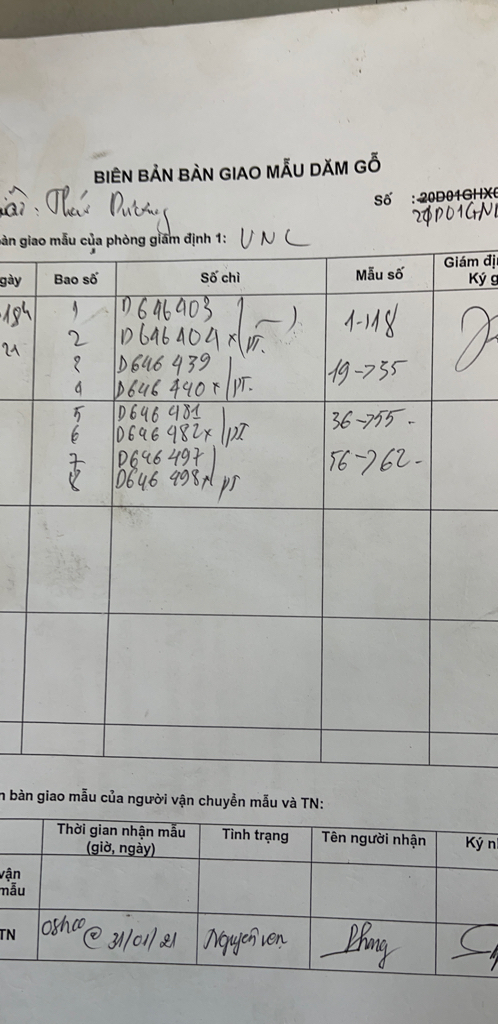 BIÊN BẢN BÀN GIAO MẪU DĂM GỖ
Thái Dương
Số :20D01GHX
20D01GN
bàn giao mẫu của phòng giám định 1: UNC
gày Bao số Số chì Mẫu số Giám đị
Ký g
18h 1 D646403
21 2 D646404 x pT. 1-118
3 D646 439
4 D646 440 x pT. 19->35
5 D646 481
6 D646 482x pT 36->55 -
7 D646 497
8 D646 498x pT 56->62 -
n bàn giao mẫu của người vận chuyển mẫu và TN:
Thời gian nhận mẫu
(giờ, ngày) Tình trạng Tên người nhận Ký nh
vận
mẫu
TN 08h00 @ 31/01/21 Nguyên vẹn Phng